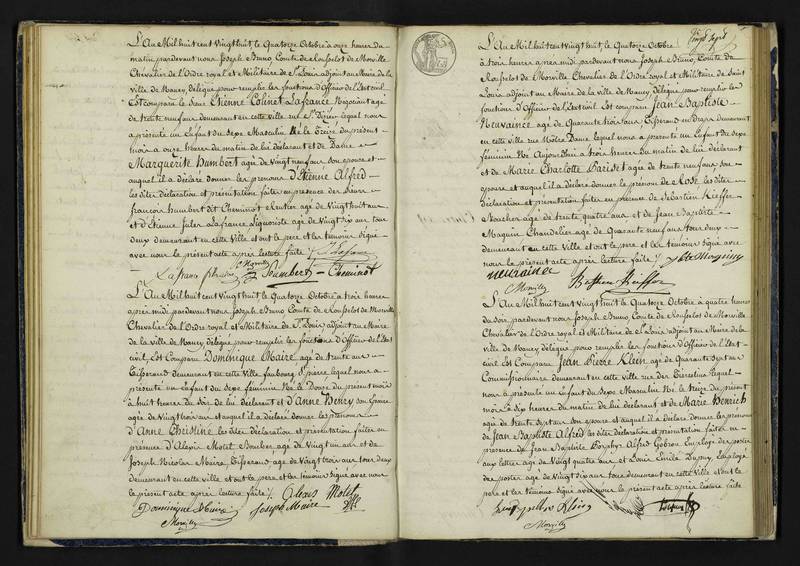 L'An Mil huit cent Vingt huit, le Quatorze Octobre à onze heures du
matin pardevant nous Joseph Bruno Comte de Rousselot de Morville
Chevalier de l'Ordre royal et Militaire de St Louis adjoint au Maire de la
Ville de Nancy, délégué pour remplir les fonctions d'Officier de l'Etat civil
Est comparu le Sieur Etienne Colinet Lafrance Négociant agé
de trente neuf ans demeurant en cette ville rue St Dizier lequel nous
a présenté un Enfant du Sexe Masculin Né le Treize du présent
mois à onze heures du matin de lui déclarant et de Dame
Marguerite Humbert agée de Vingt neuf ans son épouse et
auquel il a déclaré donner les prénoms d'Etienne Alfred
les dites déclaration et présentation faites en présence des Sieurs
françois humbert dit Cheminot Rentier agé de Vingt huit ans
et d'Etienne Jules Lafrance Liquoriste agé de Vingt six ans tous
deux demeurant en cette Ville et ont le pere et les témoins signé
avec nous le présent acte après lecture faite
Morville
Humbert - Cheminot
L'An Mil huit cent Vingt huit, le Quatorze Octobre à trois heures
après midi pardevant nous Joseph Bruno Comte de Rousselot de Morville
Chevalier de l'Ordre royal et Militaire de St Louis, adjoint au Maire
de la ville de Nancy délégué pour remplir les fonctions d'Officier de l'Etat
civil, Est Comparu Dominique Maire agé de trente ans
Tisserand demeurant en cette Ville faubourg St pierre lequel nous a
présenté un Enfant du Sexe féminin Né le Douze du présent mois
à huit heures du Soir de lui déclarant et d'Anne Henry son Epouse
agée de Vingt trois ans et auquel il a déclaré donner les prénoms
d'Anne Christine les dites déclaration et présentation faites en
présence d'Alexis Motet Bombier agé de Vingt un ans et de
Joseph Nicolas Maire Tisserand agé de Vingt trois ans tous deux
demeurant en cette ville et ont le pere et les témoins signé avec nous
le présent acte après lecture faite
Alexis Motet
Dominique Maire
Joseph Maire
Morville
Vingt Sept
L'An Mil huit cent Vingt huit, le Quatorze Octobre
à trois heures après midi pardevant nous Joseph Bruno, Comte de
Rousselot de Morville Chevalier de l'Ordre royal et Militaire de Saint
Louis adjoint au Maire de la ville de Nancy délégué pour remplir les
fonctions d'Officier de l'Etat civil est comparu Jean Baptiste
Neuvaince agé de Quarante trois ans Tisserand en draps demeurant
en cette ville rue Notre Dame lequel nous a présenté un Enfant du Sexe
féminin Né Aujourd'hui à trois heures du matin de lui déclarant
et de Marie Charlotte Pariset agée de trente neuf ans son
épouse et auquel il a déclaré donner le prénom de Rose les dites
Déclaration et présentation faites en présence de Sébastien Kieffer
agé de trente quatre ans et de Jean Baptiste
Maquin Chandelier agé de Quarante neuf ans tous deux
demeurant en cette Ville et ont le pere et les témoins signé avec
nous le présent acte après lecture faite
neuvaince
Morville
L'An Mil huit cent Vingt huit le Quatorze Octobre à quatre heures
du Soir, pardevant nous Joseph Bruno Comte de Rousselot de Morville
Chevalier de l'Ordre royal et Militaire de St Louis adjoint au Maire de la
ville de Nancy délégué pour remplir les fonctions d'Officier de l'Etat
civil Est Comparu Jean Pierre Klein agé de Quarante Sept ans
Commissionnaire demeurant en cette Ville rue des lequel
nous a présenté un Enfant du Sexe Masculin Né le treize du présent
mois à dix heures du matin de lui déclarant et de Marie Henrich
agée de trente sept ans son épouse et auquel il a déclaré donner les prénoms
de Jean Baptiste Alfred les dites déclaration et présentation faites en
présence de Jean Baptiste Porphyr Alfred Gobron Employé des postes
aux lettres agé de Vingt quatre ans et Louis Emile Dupuy Employé
des postes agé de Vingt six ans tous demeurant en cette Ville et ont le
pere et les témoins signé avec nous le présent acte après lecture faite
Morville